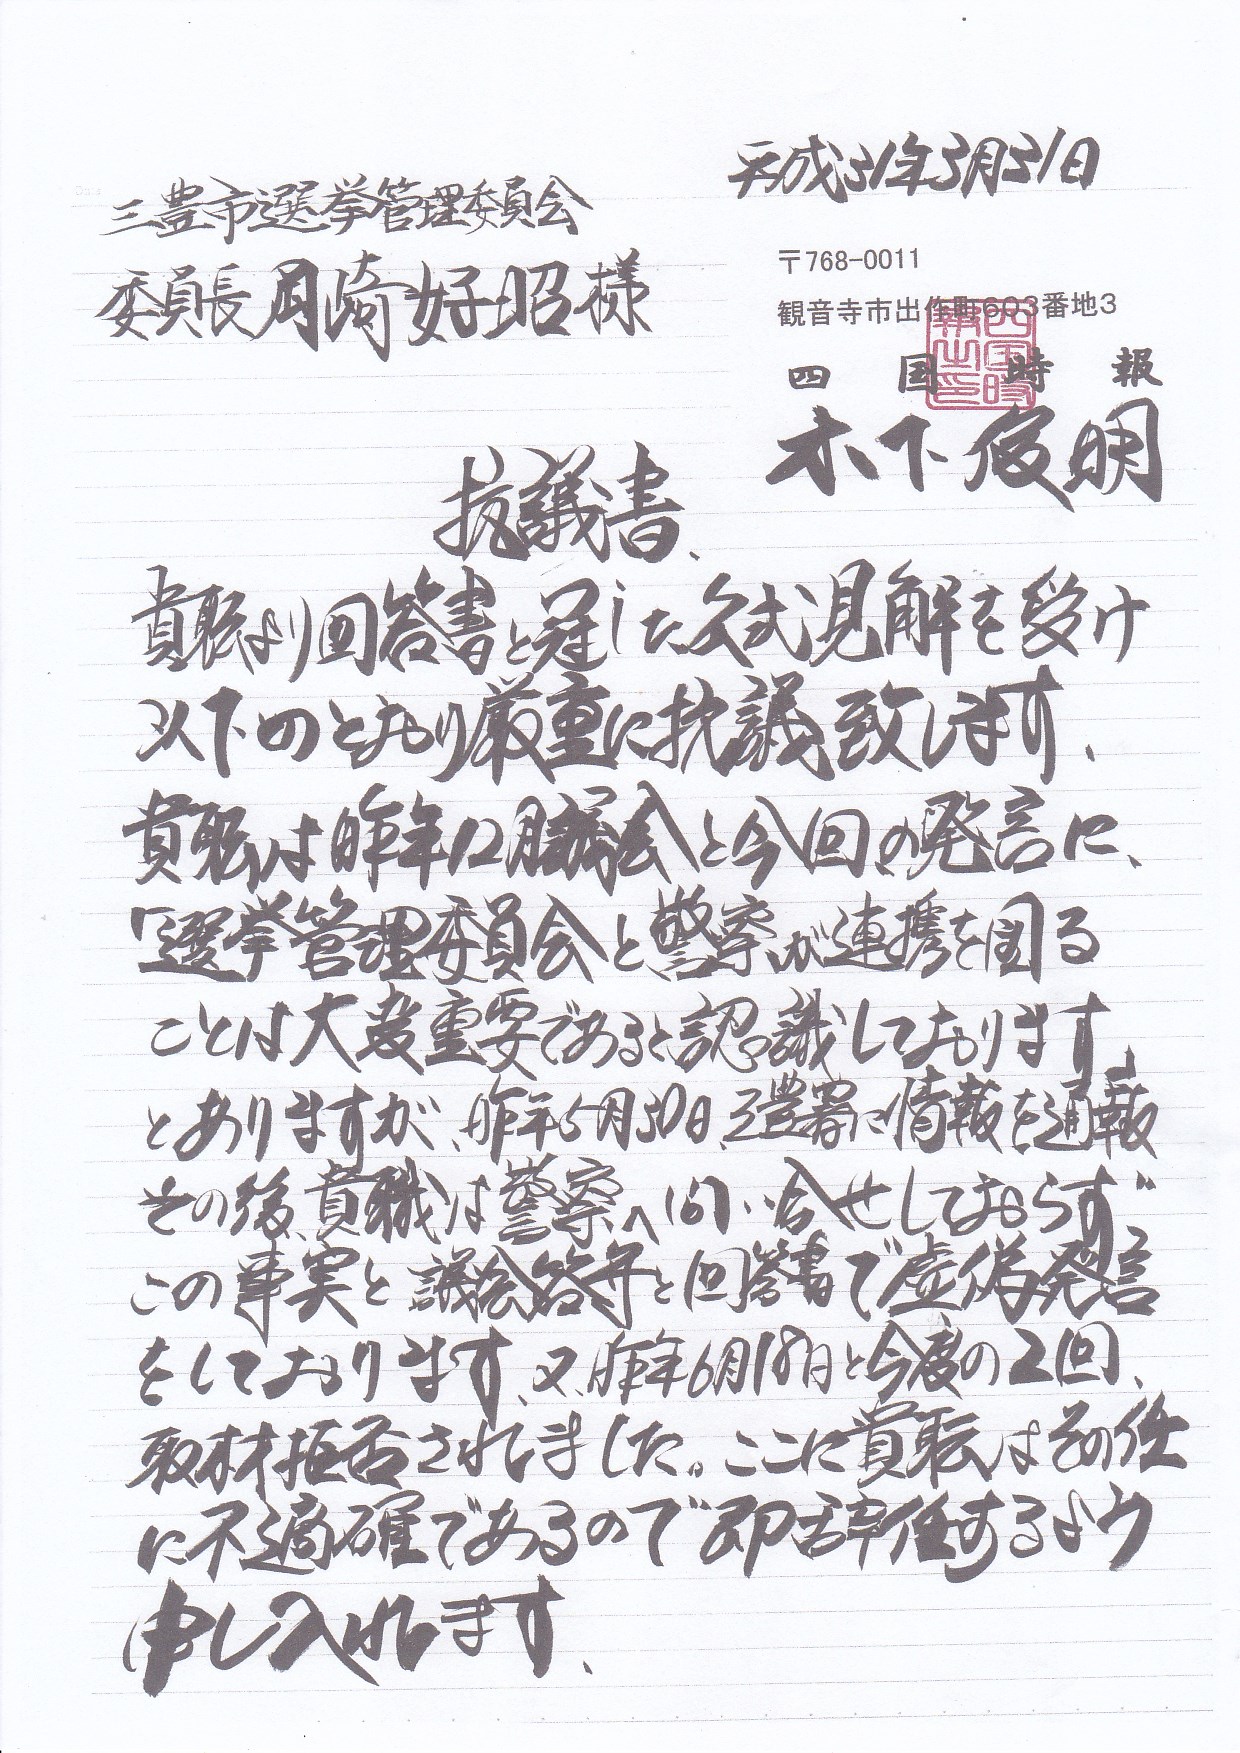 平成31年3月31日
三豊市選挙管理委員会
委員長 月崎好昭様
〒768-0011
観音寺市出作町603番地3
四国時報
木下俊明
抗議書、
貴職より回答書と冠した公式見解を受け
以下のとおり厳重に抗議致します、
貴職は昨年12月議会と今回の発言に、
「選挙管理委員会と警察が連携を図る
ことは大変重要であると認識しております」
とありますが、昨年5月30日、三豊署に情報を通報
その後、貴職は警察へ問い合せしておらず
この事実と議会答弁と回答書で虚偽発言
をしております、又、昨年6月18日と今度の2回、
取材拒否されました。ここに貴職はその任
に不適確であるので即辞任するよう
申し入れします、
四国時報社之印